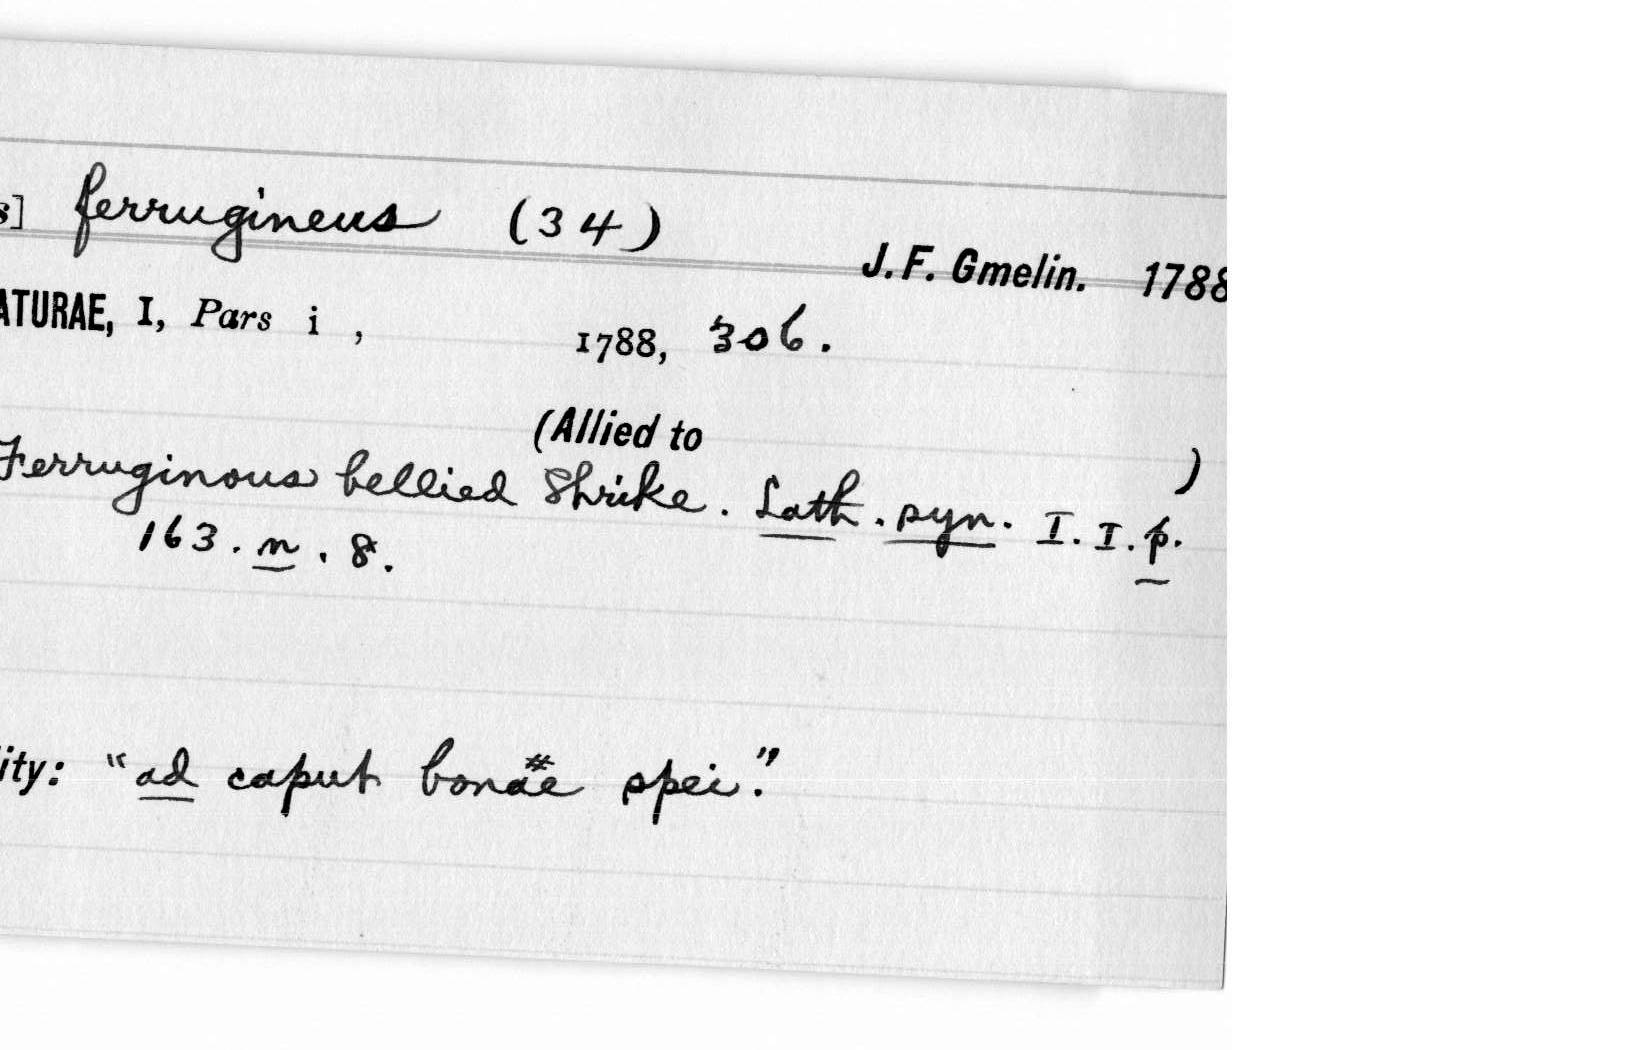 s] ferrugineus (34)
J.F. Gmelin. 1788
ATURAE, I, Pars i , 1788, 306.
(Allied to )
Ferruginous bellied Shrike. Lath. syn. I. I. p.
163. n. 8.
ity: "ad caput bonae spei."